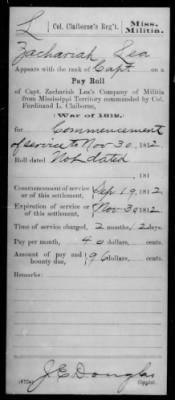 L
Col. Claiborne's Reg't.
Miss. Militia.
Zachariah Lea
Appears with the rank of Capt. on a
Pay Roll
of Capt. Zachariah Lea's Company of Militia
from Mississippi Territory commanded by Col.
Ferdinand L. Claiborne,
(War of 1812,)
for Commencement
of service to Nov 30, 1812
Roll dated Not dated
, 181
Commencement of service or of this settlement, Sep 19, 1812
Expiration of service or of this settlement, Nov 30, 1812
Time of service charged, 2 months, 12 days.
Pay per month, 40 dollars, cents.
Amount of pay and bounty due, 96 dollars, cents.
Remarks:
J. E. Douglas
Copyist.